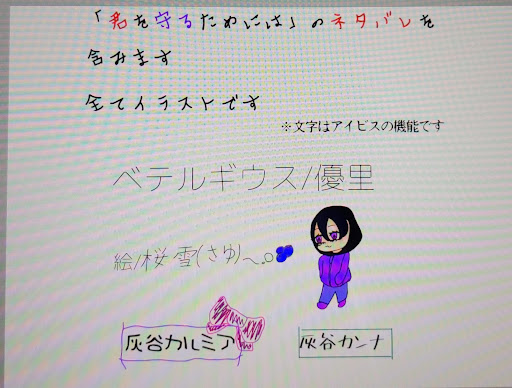 「君を守るためには」のネタバレを
含みます
全てイラストです
※文字はアイビスの機能です
ベテルギウス/優里
絵/桜雪(さゆ)〜.o
灰谷カルミア
灰谷カンナ